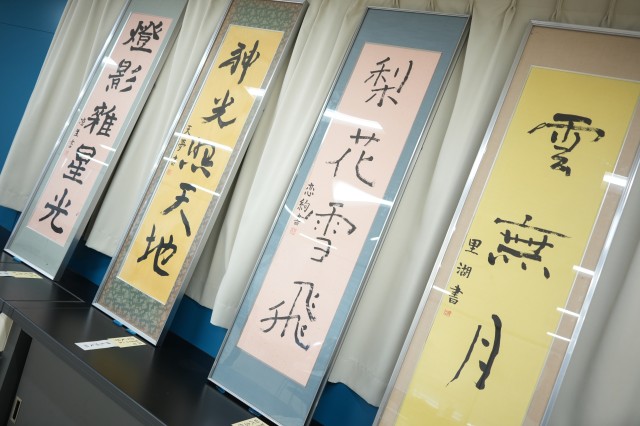 雲無月
里湖書
梨花雪飛
神光照天地
燈影雜星光